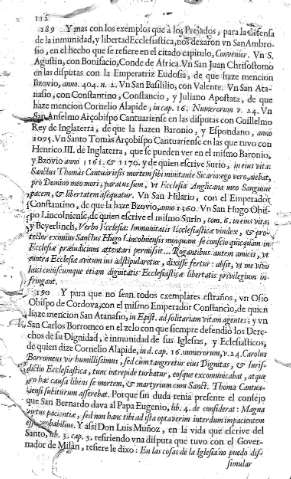 189 Y mas con los exemplos que à los Prelados, para la defensa
de la inmunidad, y libertad Ecclesiastica, nos dexaron vn San Ambro-
sio, en el hecho que se refiere en el citado capitulo, Convenior. Vn S.
Agustin, con Bonifacio, Conde de Africa. Vn San Juan Chrisostomo
en las disputas con la Emperatriz Eudosia, de que haze mencion
Brovio, anno. 404. n. 1. Vn San Basilio, con Valente. Vn San Ata-
nasio, con Constantino, Constancio, y Juliano Apostata, de que
haze mencion Cornelio Alapide, in cap. 16. Numerorum v. 24. Vn
San Anselmo Arçobispo Cantuariense en las disputas con Guillelmo
Rey de Inglaterra, de que la hazen Baronio, y Espondano, anno
1095. Vn Santo Tomàs Arçobispo Cantuariense en las que tuvo con
Henrico III. de Inglaterra, que se pueden ver en el mismo Baronio,
y Bzovio anno 1161. & 1170. y de quien escrive Surio, in eius vita:
Sanctus Thomas Cantuariensis mortem sibi minitante Sicariorum vero, aiebat,
pro Domino meo mori, paratus sum, vt Ecclesia Anglicana meo Sanguine
pacem, & libertatem assequatur. Vn San Hilario, con el Emperador
Constantino, de que la haze Bzovio, anno 1260. Vn San Hugo Obispo
Lincolniense, de quien escrive el mismo Surio, tom. 6. in eius vita
y Beyerlinch, Verbo Ecclesia: Immunitatis Ecclesiastica vindex, & pro-
tector eximius Sanctus Hugo Lincolniensis nunquam se conscio quicquam in
Ecclesia præiudicium attentari permisit... Rogantibus autem amicis, vt
contra Ecclesia
laici consensumque etiam dignitatis Ecclesiastica & libertatis privilegium in-
fringant.
190 Y para que no sean todos exemplares estraños, vn Osio
Obispo de Cordova, con el mismo Emperador Constancio, de quien
haze mencion San Atanasio, in Epist. ad solitariam vitam agentes; y vn
San Carlos Borromeo en el zelo con que siempre defendiò los Dere-
chos de su Dignidad, è inmunidad de sus Iglesias, y Eclesiasticos,
de quien dize Cornelio Alapide, in d. cap. 16. numerorum, v. 24. Carolus
Borromeus vir humillissimus, sed cum angeretur eius Dignitas, & Iuris-
dictio Ecclesiastica, tunc intrepide torbatur, eosque excomunicabat, at que
pro hac causa libens se mortem, & martyrium cum Sanct. Thoma Cantua-
riensi subiturum asserebat. Porque sin duda tenia presente el consejo
que San Bernardo dava al Papa Eugenio, lib. 4. de considerat: Magna
virtus pacientia, sed non hanc tibi ad ista optaverim interdum impacientem
esse probabilius. Y assi Don Luis Muñoz, en la vida que escrive del
Santo, lib. 3. cap. 3. refiriendo vna disputa que tuvo con el Gover-
nador de Milàn, refiere le dixo: En las cosas de la Iglesia no puedo dis-
simular